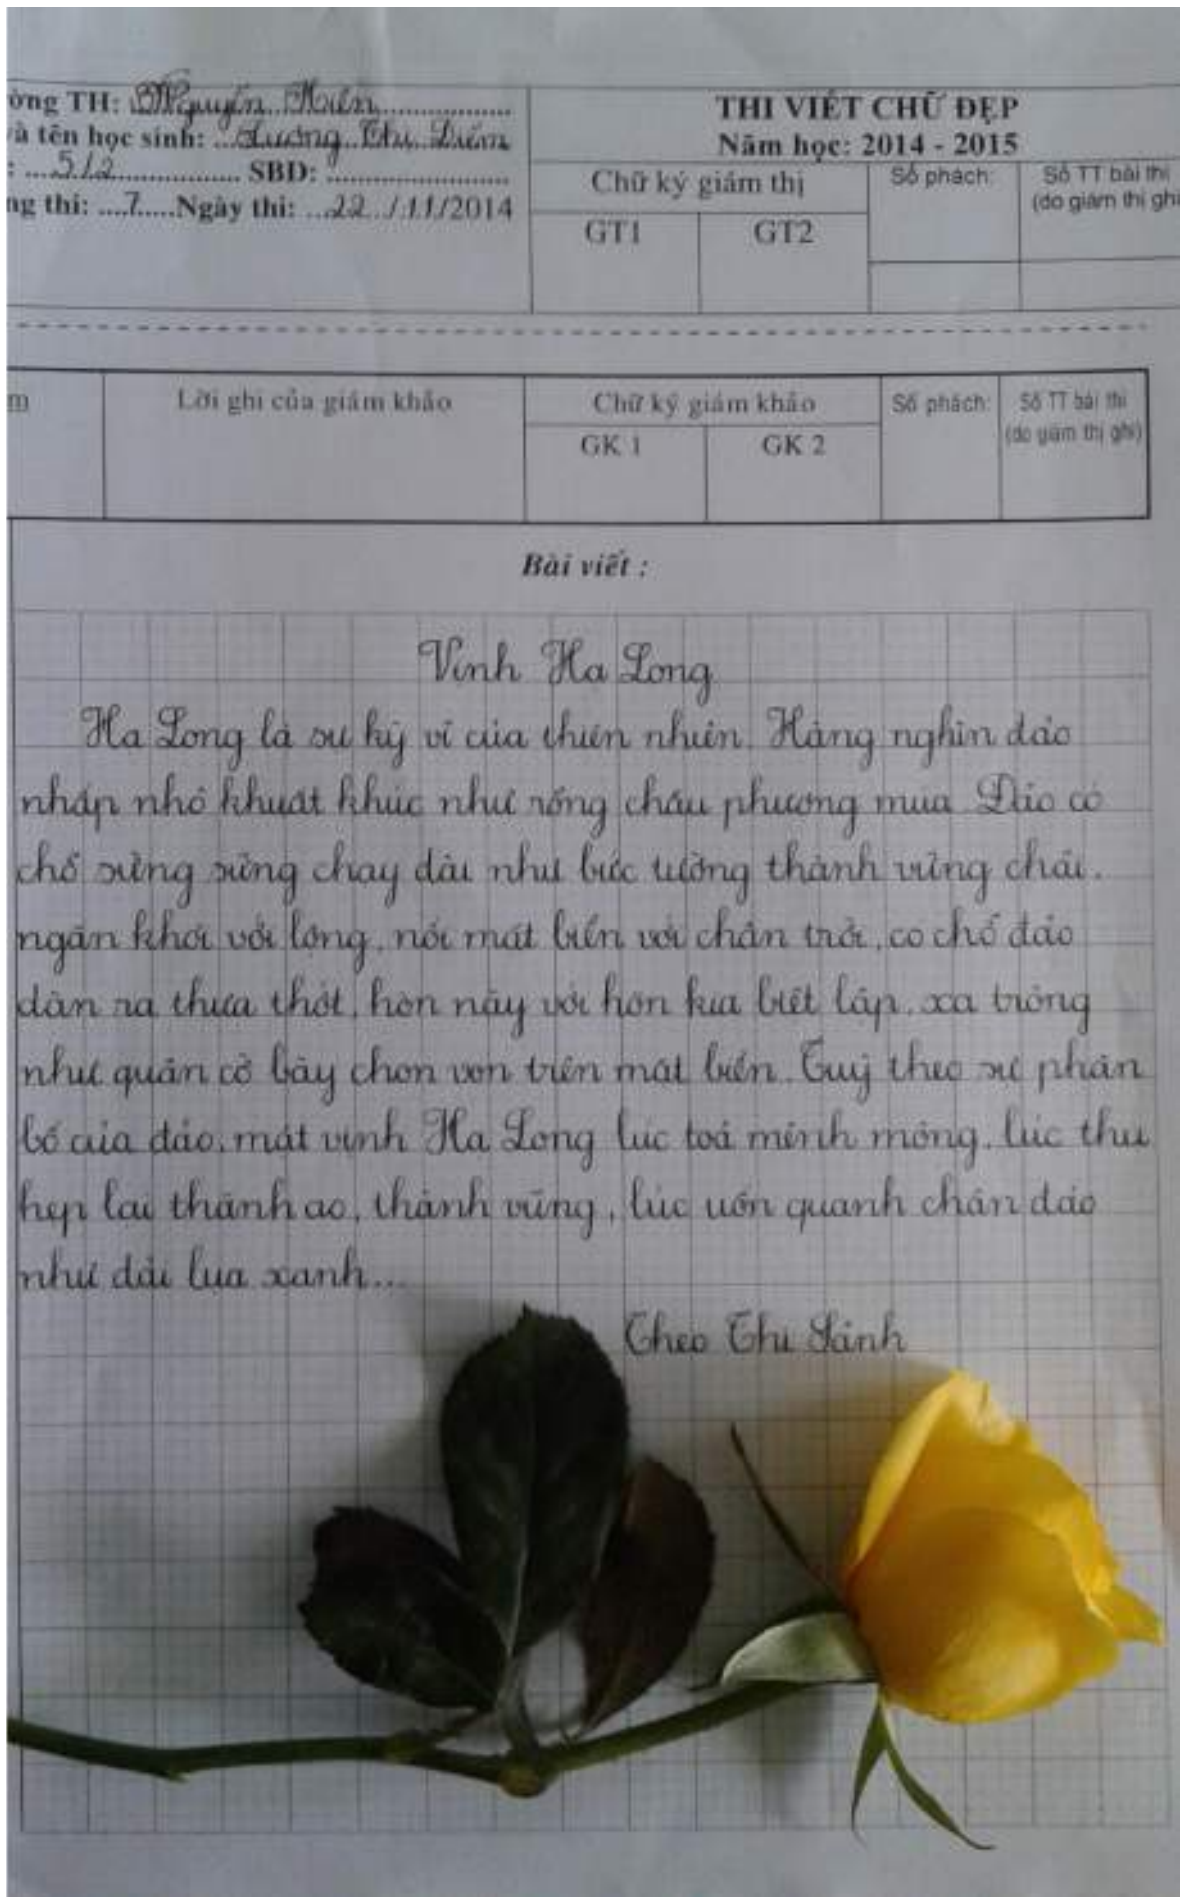 ờng TH: Nguyễn Hiền
à tên học sinh: Lương Thị Diễm
: 5/2 SBD:
ng thi: 7 Ngày thi: 22 /11/2014
THI VIẾT CHỮ ĐẸP
Năm học: 2014 - 2015
Chữ ký giám thị
GT1 GT2
Số phách:
Số TT bài thi
(do giám thị ghi
m
Lời ghi của giám khảo
Chữ ký giám khảo
GK 1 GK 2
Số phách:
Số TT bài thi
(do giám thị ghi)
Bài viết :
Vịnh Hạ Long
Hạ Long là sự kỳ vĩ của thiên nhiên. Hàng nghìn đảo
nhấp nhô khuất khúc như rồng chầu phượng múa. Đảo có
chỗ sừng sững chạy dài như bức tường thành vững chãi.
ngăn khơi với lộng, nối mặt biển với chân trời, có chỗ đảo
dàn ra thưa thớt, hòn này với hòn kia biệt lập, xa trông
như quân cờ bày chon von trên mặt biển. Tuỳ theo sự phân
bố của đảo, mặt vịnh Hạ Long lúc toả mênh mông, lúc thu
hẹp lại thành ao, thành vũng, lúc uốn quanh chân đảo
như dải lụa xanh...
Theo Thi Sảnh